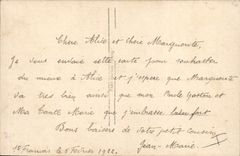 Chère Alice et chère Marguerite,
Je vous envoie cette carte pour souhaiter
du mieux à Alice et j'espère que Marguerite
va très bien ainsi que mon Oncle Gaston et
Ma Tante Marie que j'embrasse bien fort
Bons baisers de votre petit cousin
Jean-Marie.
le 5 Février 1922.